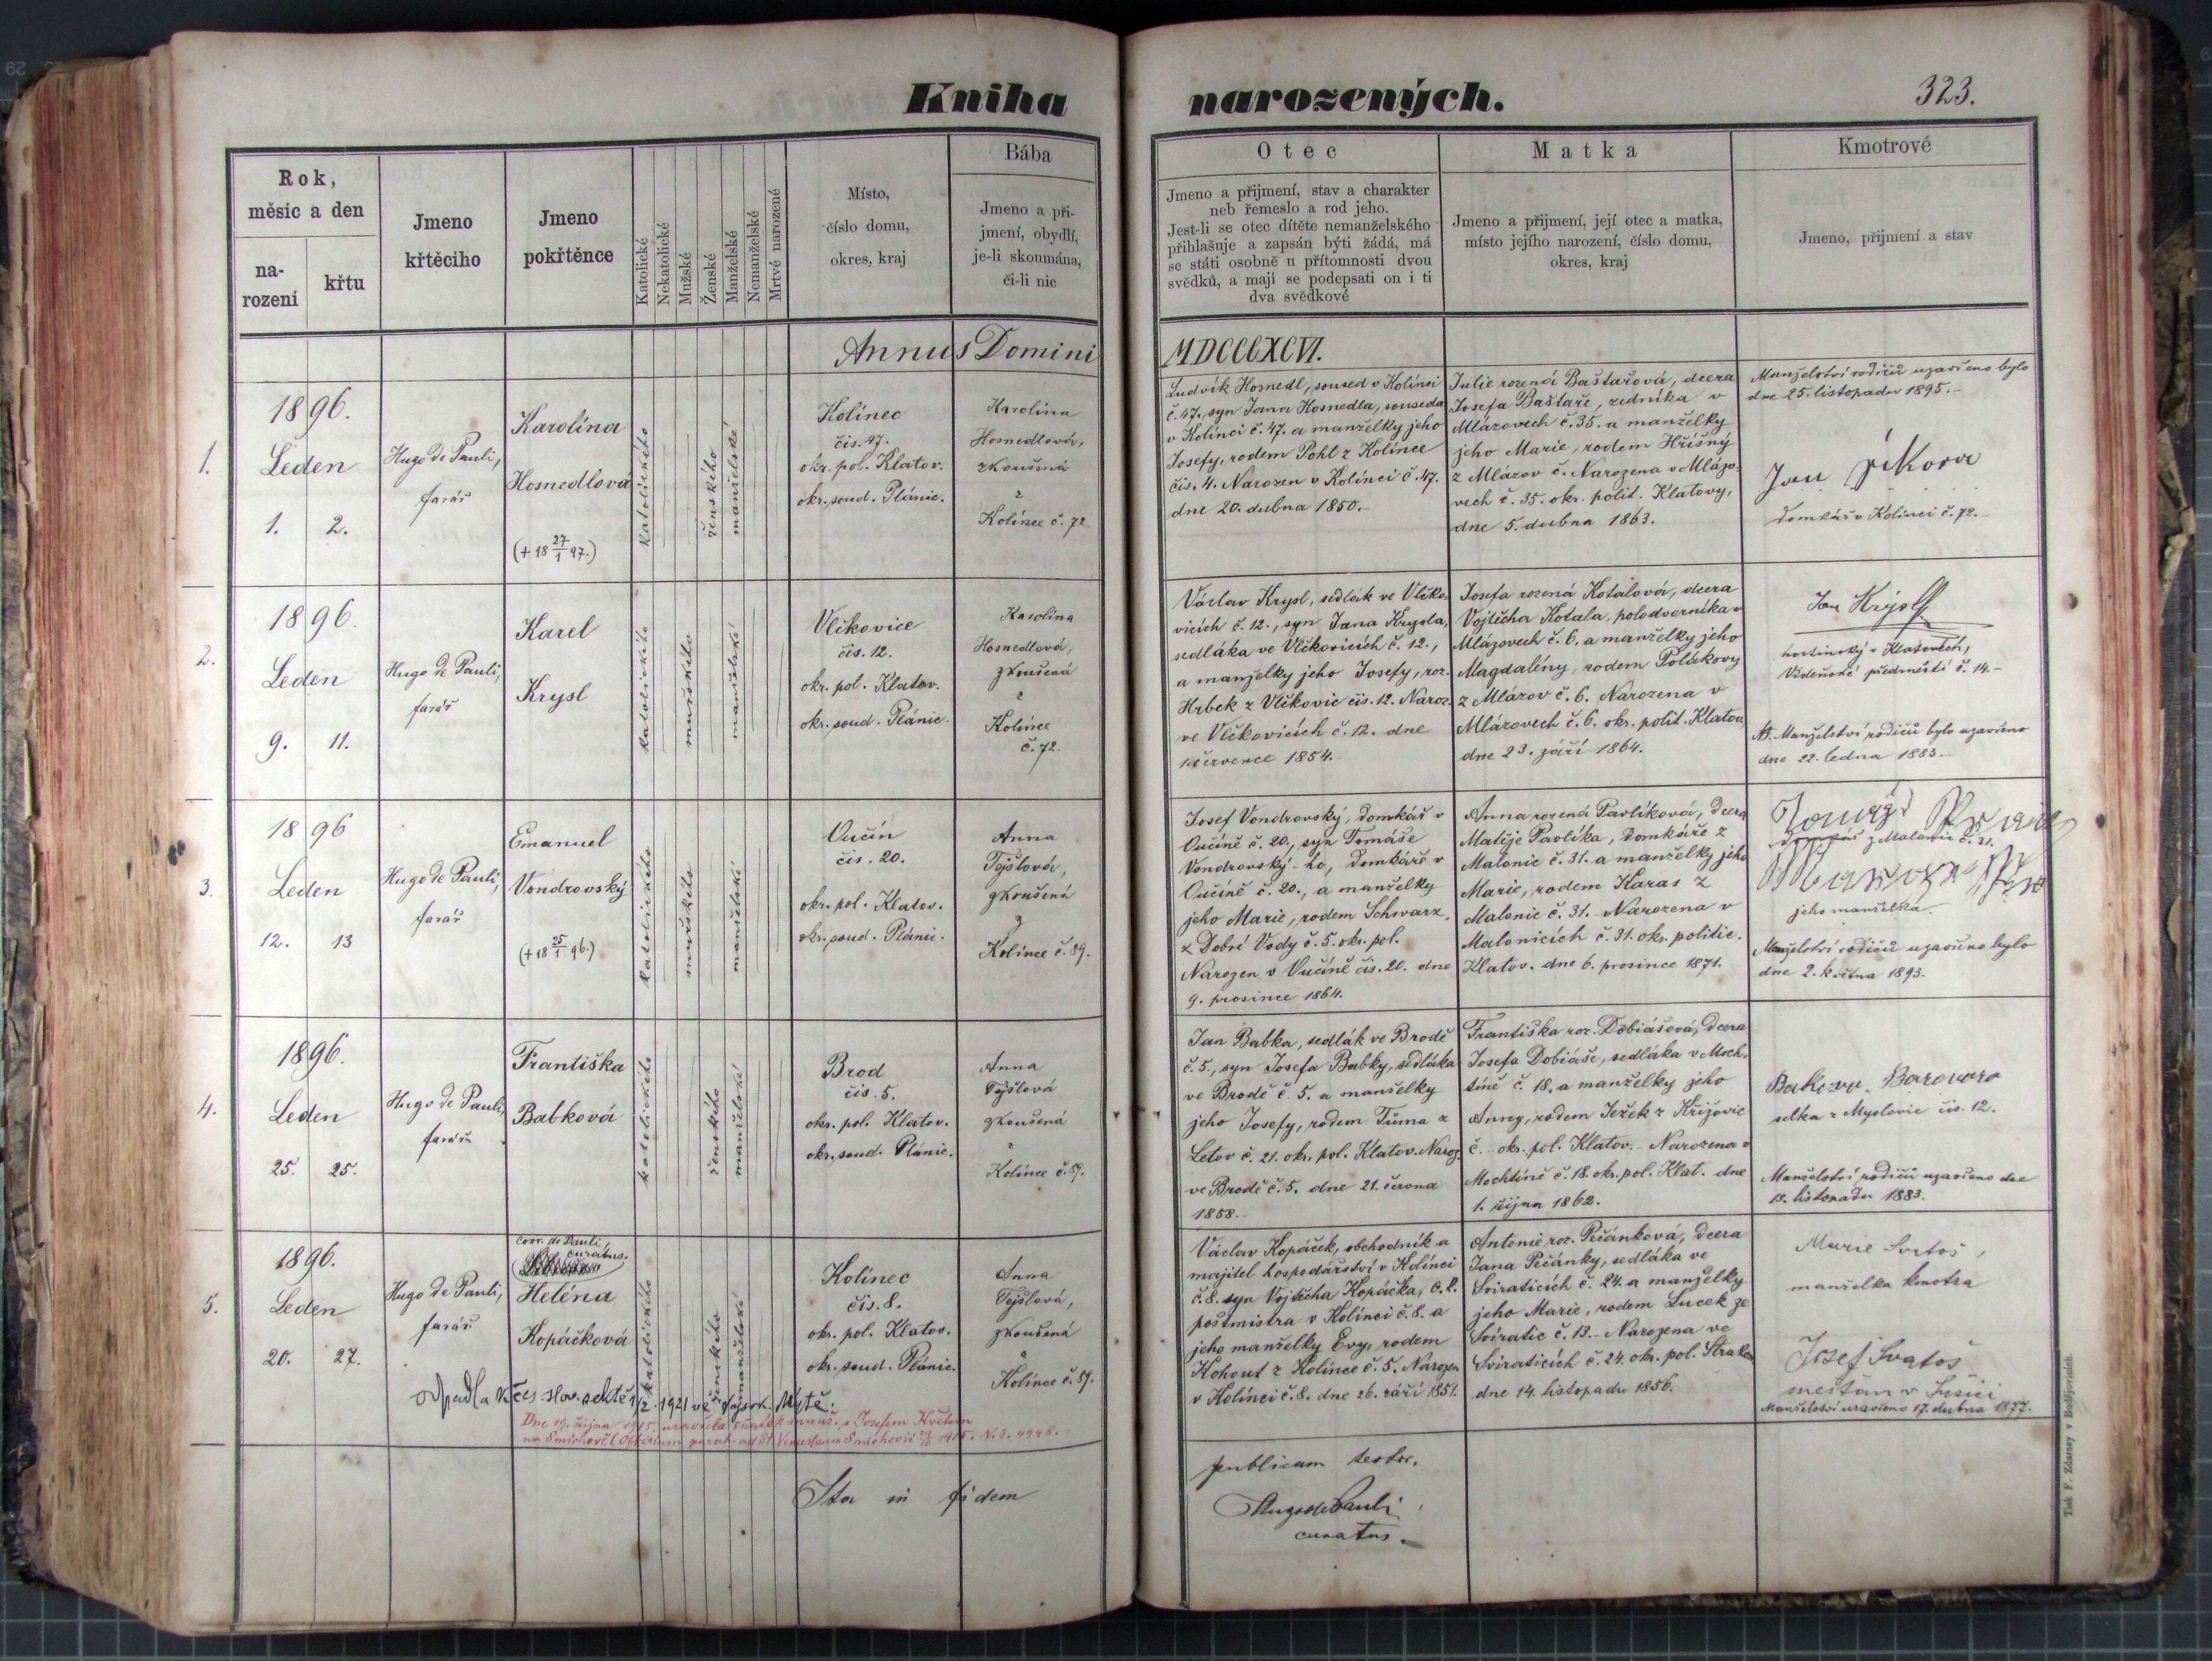 Kniha narozených.
323.
Rok,
měsíc a den
na-
rození
křtu
Jmeno
křtěcího
Jmeno
pokřtěnce
Katolické
Nekatolické
Mužské
Ženské
Manželské
Nemanželské
Mrtvé narozené
Místo,
číslo domu,
okres, kraj
Bába
Jmeno a při-
jmení, obydlí,
je-li skoumána,
či-li nic
Otec
Jmeno a přijmení, stav a charakter
neb řemeslo a rod jeho.
Jest-li se otec dítěte nemanželského
přihlašuje a zapsán býti žádá, má
se státi osobně u přítomnosti dvou
svědků, a mají se podepsati on i ti
dva svědkové
Matka
Jmeno a přijmení, její otec a matka,
místo jejího narození, číslo domu,
okres, kraj
Kmotrové
Jmeno, přijmení a stav
Annus Domini MDCCCXCVI.
1.
1896.
Leden
1. 2.
Hugo de Pauli,
farář
Karolína
Hosnedlová
(+ 18 27/1 97.)
katolického
ženského
manželské
Kolínec
čis. 47.
okr. pol. Klatov.
okr. soud. Plánic.
Karolína
Hosnedlová,
zkoušená
z
Kolínce č. 72
Ludvík Hosnedl, soused v Kolínci
č. 47, syn Jana Hosnedla, souseda
v Kolínci č. 47. a manželky jeho
Josefy, rodem Pohl z Kolínce
čis. 4. Narozen v Kolínci č. 47.
dne 20. dubna 1850.-
Julie rozená Baštařová, dcera
Josefa Baštaře, zedníka v
Mlázovech č. 35. a manželky
jeho Marie, rodem Hříšný
z Mlázov č. Narozena v Mlázo-
vech č. 35. okr. polit. Klatovy,
dne 5. dubna 1863.
Manželství rodičů uzavřeno bylo
dne 25. listopadu 1895.-
Jan
domkář v Kolinci č. 72.
2.
1896.
Leden
9. 11.
Hugo de Pauli,
farář
Karel
Krysl
katolického
mužského
manželské
Vlčkovice
čis. 12.
okr. pol. Klatov.
okr. soud. Plánic.
Karolína
Hosnedlová,
zkoušená
z
Kolínce
č. 72.
Václav Krysl, sedlák ve Vlčko-
vicích č. 12., syn Jana Krysla,
sedláka ve Vlčkovicích č. 12.,
a manželky jeho Josefy, roz.
Hrbek z Vlčkovic čis. 12. Naroz.
ve Vlčkovicích č. 12. dne
1. července 1854.
Josefa rozená Kotalová, dcera
Vojtěcha Kotala, polodvorníka v
Mlázovech č. 6. a manželky jeho
Magdalény, rodem Polákovy
z Mlázov č. 6. Narozena v
Mlázovech č. 6. okr. polit. Klatov,
dne 23. září 1864.
Jan Krýsl
hostinský v Klatovech,
Vídeňské předměstí č. 14.-
Manželství rodičů bylo uzavřeno
dne 22. ledna 1883.-
3.
1896
Leden
12. 13
Hugo de Pauli,
farář
Emanuel
Vondrovský
(+ 18 25/1 96.)
katolického
mužského
manželské
Vučín
čis. 20.
okr. pol. Klatov.
okr. soud. Plánic.
Anna
Tejšlová,
zkoušená
z
Kolínce č. 89.
Josef Vondrovský, domkář v
Oučíně č. 20., syn Tomáše
Vondrovský-ho, domkáře v
Oučíně č. 20., a manželky
jeho Marie, rodem Schwarz,
z Dobré Vody č. 5. okr. pol.
Narozen v Vučíně čis. 20. dne
9. prosince 1864.
Anna rozená Pavlíková, dcera
Matěje Pavlíka, domkáře z
Malonic č. 31. a manželky jeho
Marie, rodem Karas z
Malonic č. 31. Narozena v
Malonicích č. 31. okr. politic.
Klatov. dne 6. prosince 1871.
z Malonic č. 31.
jeho manželka.
Manželství rodičů uzavřeno bylo
dne 2. května 1893.
4.
1896.
Leden
25. 25.
Hugo de Pauli,
farář
Františka
Babková
katolického
ženského
manželské
Brod
čis. 5.
okr. pol. Klatov.
okr. soud. Plánic.
Anna
Tejšlová
zkoušená
z
Kolínce č. 89.
Jan Babka, sedlák ve Brodě
č. 5., syn Josefa Babky, sedláka
ve Brodě č. 5. a manželky
jeho Josefy, rodem Tůma z
Letov č. 21. okr. pol. Klatov. Naroz.
ve Brodě č. 5. dne 21. června
1858.-
Františka roz. Dobiášová, dcera
Josefa Dobiáše, sedláka v Moch-
tíně č. 18. a manželky jeho
Anny, rodem Ježek z Křižovic
č. - okr. pol. Klatov.- Narozena v
Mochtíně č. 18. okr. pol. Klat. dne
1. října 1862.
selka z Myslovic čis. 12.
Manželství rodičů uzavřeno dne
listopadu 1883.
5.
1896.
Leden
20. 27.
Hugo de Pauli,
farář
corr. de Pauli,
curatus.
Heléna
Kopáčková
katolického
ženského
manželské
Kolínec
čis. 8.
okr. pol. Klatov.
okr. soud. Plánic.
Anna
Tejšlová,
zkoušená
z
Kolínce č. 89.
Václav Kopáček, obchodník a
majitel hospodářství v Kolínci
č. 8. syn Vojtěcha Kopáčka, c. k.
poštmistra v Kolínci č. 8. a
jeho manželky Evy, rodem
Kohout z Kolínce č. 5. Narozen
v Kolínci č. 8. dne 26. září 1851.
Antonie roz. Pečánková, dcera
Jana Pečánky, sedláka ve
Sviraticích č. 24. a manželky
jeho Marie, rodem Lucek ze
Sviratic č. 13.- Narozena ve
Sviraticích č. 24. okr. pol. Strakon.
dne 14. listopadu 1856.
Marie Svatoš,
manželka kmotra
Josef Svatoš
měšťan v Sušici
Manželství uzavřeno 17. dubna 1877.
Odpadla k čes. slov. sektě 1/2 1921 ve Vysok. Mýtě.
Dne 19. října 1915. uzavřela sňatek s Josefem Květem
na Smíchově (Officium paroch. ad St. Venceslaum Smichovii 1915. N. E. 4948.
Ita in fidem publicam testor,
Hugo de Pauli
curatus.
Tisk F. Zdarssy v Budějovicích.